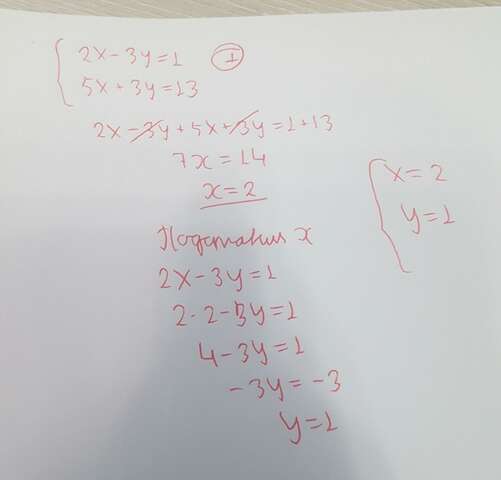 2x-3y=1 ①
5x+3y=13
2x-3y+5x+3y=1+13
7x=14
x=2
Подставим x
2x-3y=1
2·2-3y=1
4-3y=1
-3y=-3
y=1
x=2
y=1